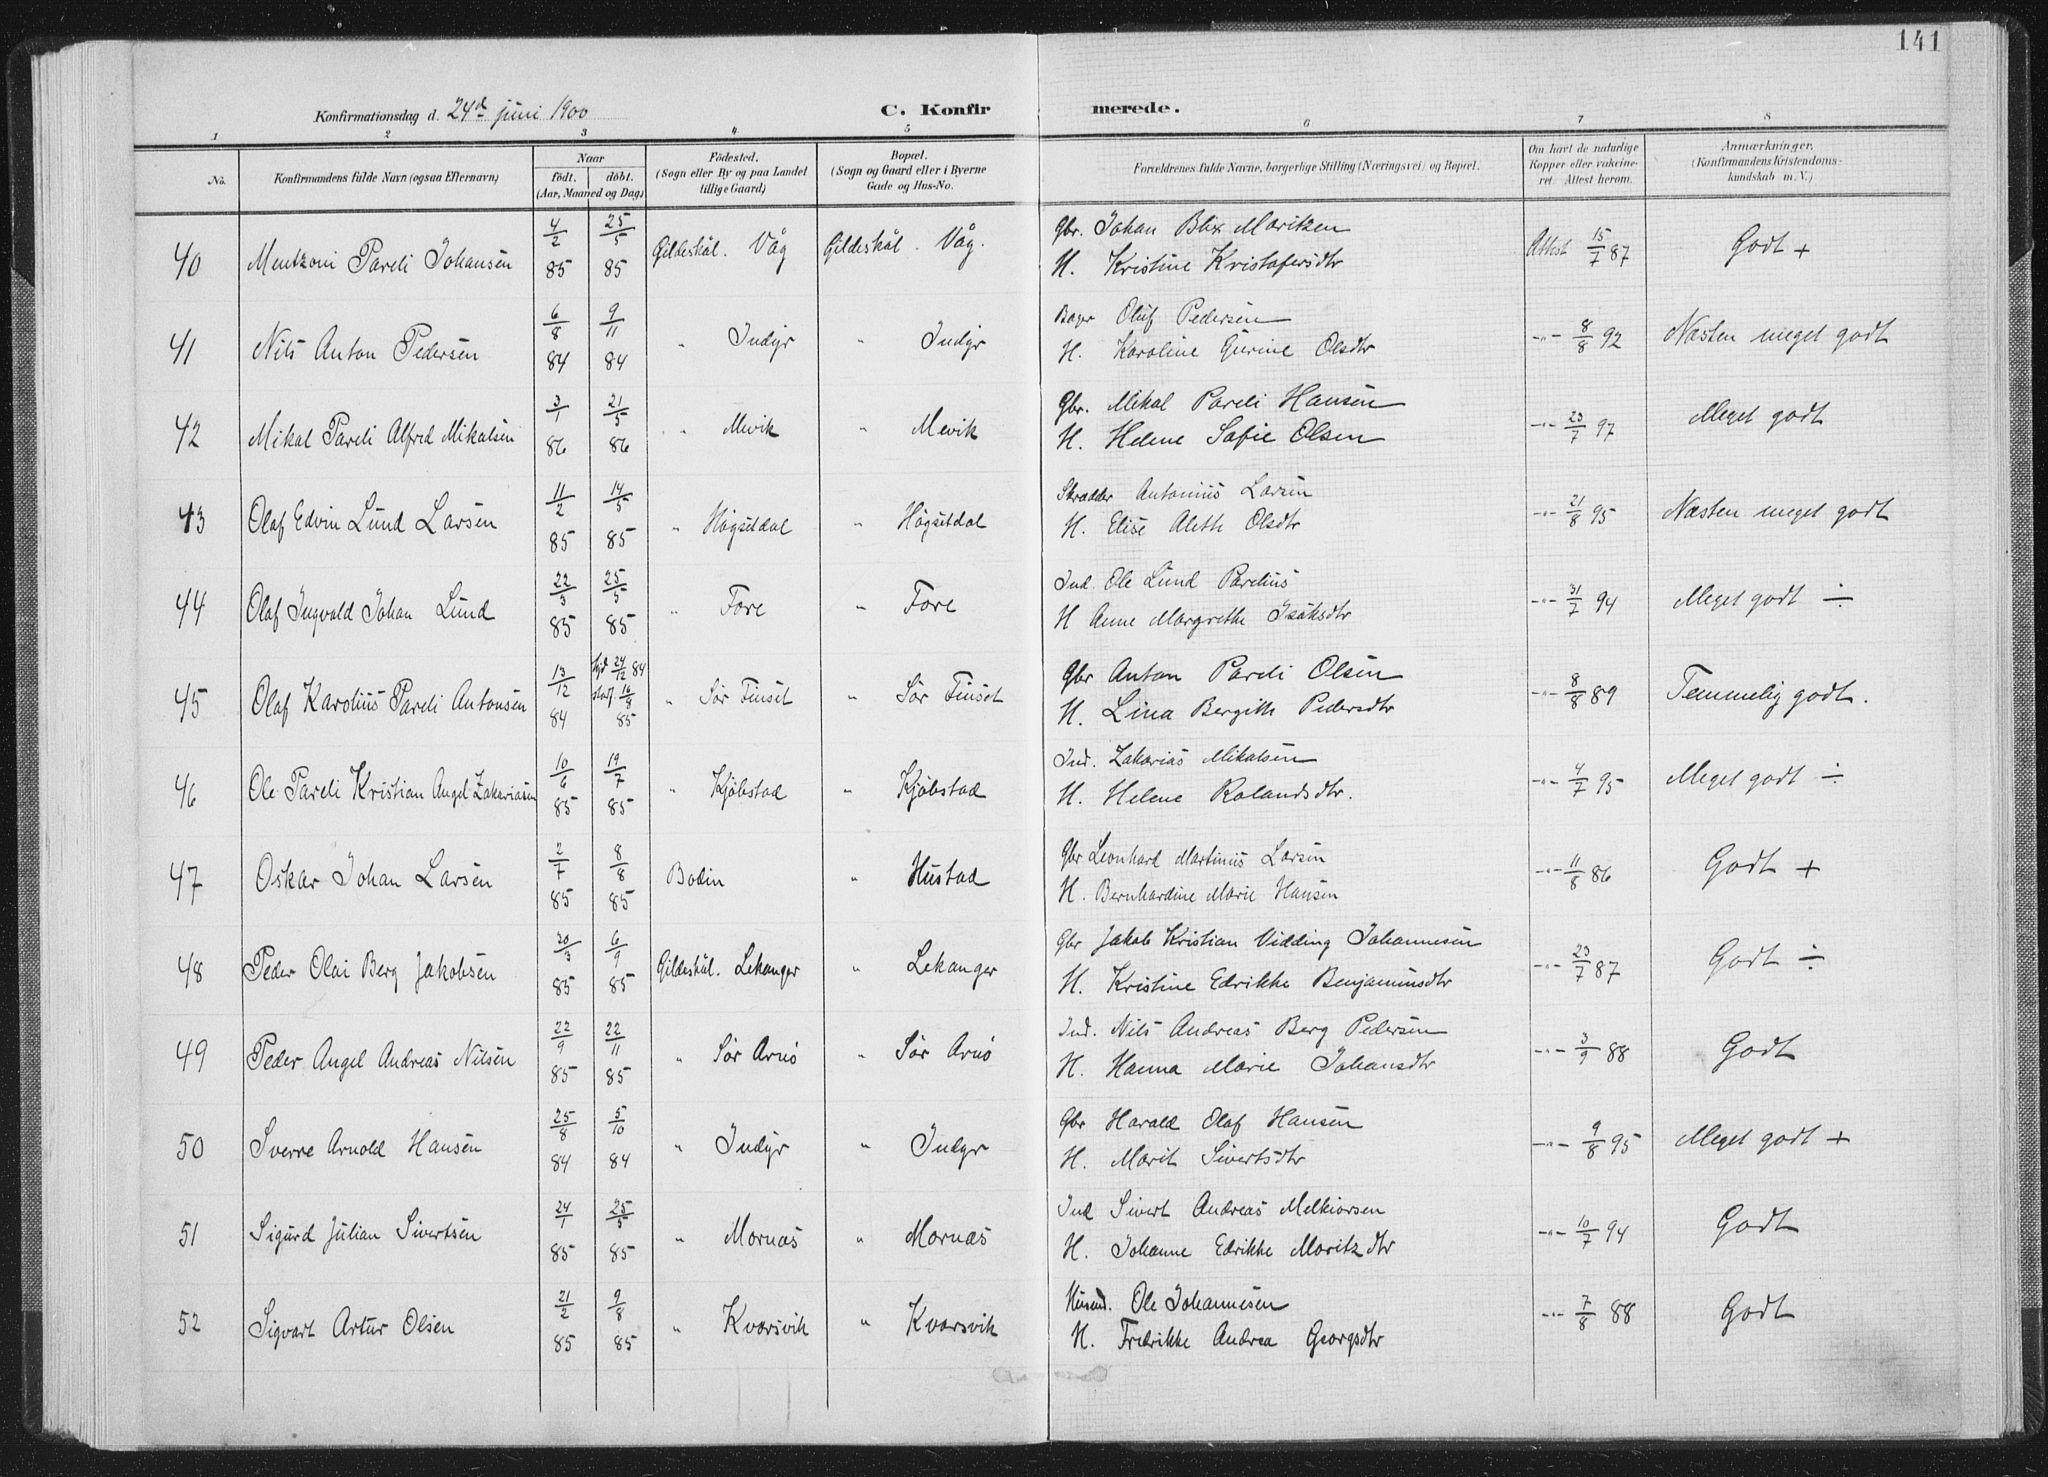 141
Konfirmationsdag d. 24d juni 1900 C. Konfir merede.
1 2 3 4 5 6 7 8
No. Konfirmandens fulde Navn (ogsaa Efternavn) Naar født. døbt. (Aar, Maaned og Dag) Fødested. (Sogn eller By og paa Landet tillige Gaard) Bopæl. (Sogn og Gaard eller i Byerne Gade og Hus-No. Forældrenes fulde Navne, borgerlige Stilling (Næringsvei) og Bopæl. Om havt de naturlige Kopper eller vakcineret. Attest herom. Anmærkninger. (Konfirmandens Kristendomskundskab m. V.)
40 Mentzoni Pareli Johansen 4/2 85 25/5 85 Gildeskål. Våg Gildeskål. Våg. Gbr. Johan Blix Moritzen Attest 15/7 87 Godt +
H. Kristine Kristofersdtr
41 Nils Anton Pedersen 6/8 84 9/11 84 " Indyr " Indyr Bager Oluf Pedersen -"- 8/8 92 Næsten meget godt
H. Karoline Gurine Olsdtr
42 Mikal Pareli Alfred Mikalsen 3/1 86 21/5 86 " Mevik " Mevik Gbr. Mikal Pareli Hansen -"- 23/7 97 Meget godt
H. Helene Sofie Olsen
43 Olaf Edvin Lund Larsen 11/2 85 14/5 85 " Høgsetdal " Høgsetdal Skrædder Antonius Larsen -"- 21/8 95 Næsten meget godt
H. Elise Aleth Olsdtr
44 Olaf Ingvald Johan Lund 22/3 85 25/5 85 " Fore " Fore Ind. Ole Lund Parelius -"- 31/7 94 Meget godt ÷
H Anne Margrethe Isaksdtr
45 Olaf Karolius Pareli Antonsen 13/12 84 hjd 24/12 84 stadf 16/8 85 " Sør Finset " Sør Finset Gbr Anton Pareli Olsen -"- 8/8 89 Temmelig godt.
H. Lina Bergith Pedersdtr
46 Ole Pareli Kristian Angel Zakariasen 10/6 85 19/7 85 " Kjøbstad " Kjøbstad Ind. Zakarias Mikalsen -"- 4/7 95 Meget godt ÷
H. Helene Rolandsdtr.
47 Oskar Johan Larsen 2/7 85 8/8 85 Bodin " Hustad Gbr Leonhard Martinus Larsen -"- 11/8 86 Godt +
H. Bernhardine Marie Hansen
48 Peder Olai Berg Jakobsen 20/3 85 6/9 85 Gildeskål. Lekanger " Lekanger Gbr Jakob Kristian Vidding Johannesen -"- 23/7 87 Godt ÷
H. Kristine Edrikke Benjaminsdtr
49 Peder Angel Andreas Nilsen 22/9 85 22/11 85 " Sør Arnø " Sør Arnø Ind. Nils Andreas Berg Pedersen -"- 3/9 88 Godt
H. Hanna Marie Johansdtr
50 Sverre Arnold Hansen 25/8 84 5/10 84 " Indyr " Indyr Gbr Harald Olaf Hansen -"- 9/8 95 Meget godt +
H. Marit Sivertsdtr
51 Sigurd Julian Sivertsen 24/1 85 25/5 85 " Mornæs " Mornæs Ind Sivert Andreas Melkiorsen -"- 10/7 94 Godt
H. Johanne Edrikke Moritzdtr
52 Sigvart Artur Olsen 21/2 85 9/8 85 " Kvarsvik " Kvarsvik Husmd. Ole Johannesen -"- 7/8 88 Godt
H. Fredrikke Andrea Georgsdtr